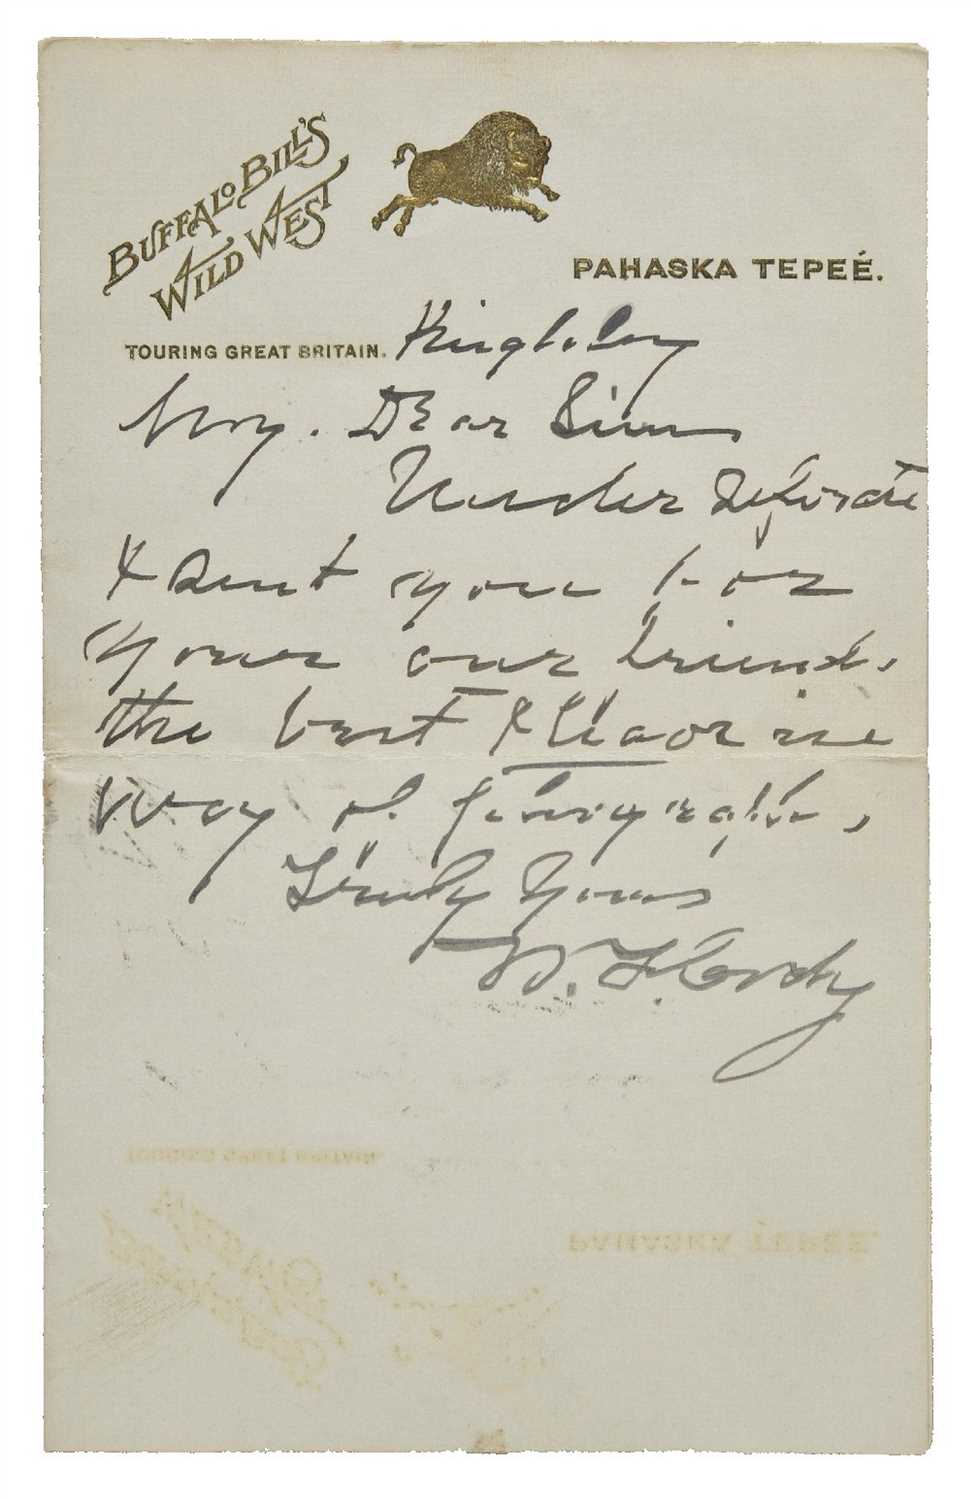 BUFFALO BILL'S
WILD WEST
PAHASKA TEPEÉ.
TOURING GREAT BRITAIN.
My. Dear Sim
Under Seporate
I sent you for
your our friend.
the best I have in
way of fotograph,
Truly Yours
W. F. Cody